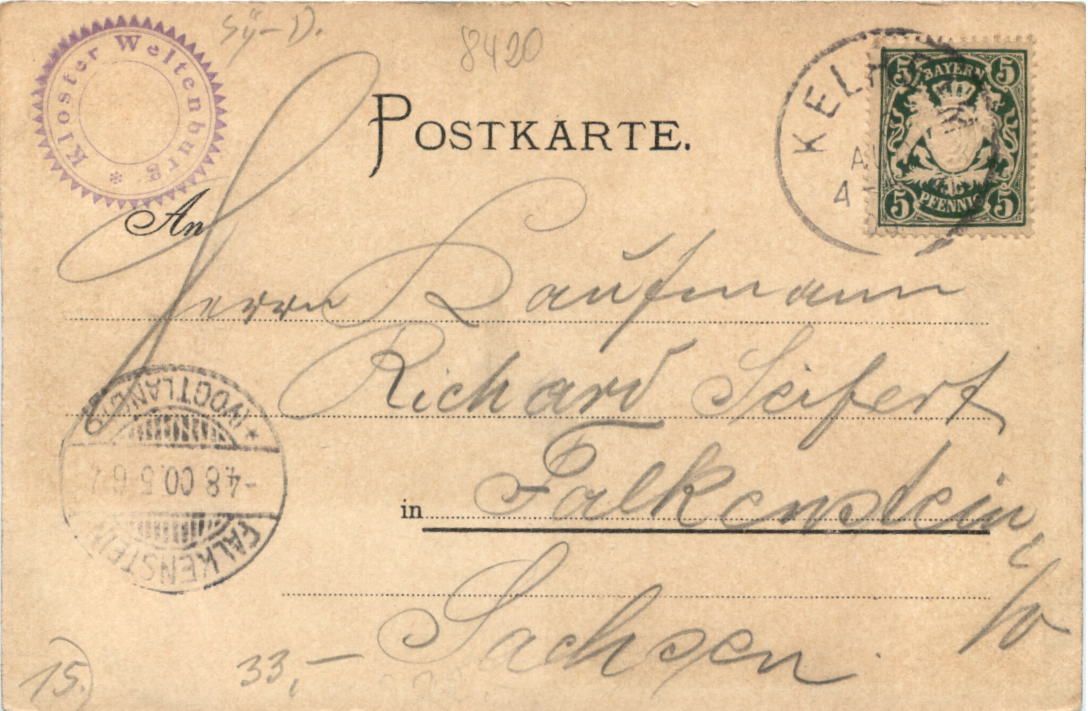 Kloster Weltenburg *
Sÿ-D.
8420
POSTKARTE.
KELH
4
5 BAYERN 5
5 PFENNIG 5
An
Herrn Kaufmann
Richard Seifert
in Falkenstein
i/V
Sachsen.
* (VOGTLAND)
-4 8 00. 5-6
FALKENSTEIN
15.
33,-